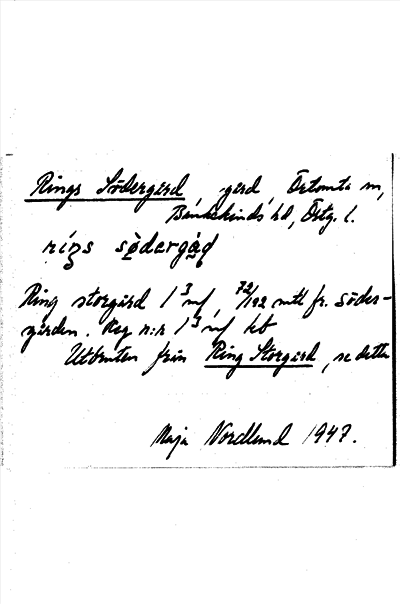 Rings Södergård, gård, Örtomta sn,
Bankekinds hd, Östg. l.
riŋs södərgåɖ
Ring storgård 1 3 mf, 72/192 mtl fr. söder-
gården. Reg n:r 1 3 mf kb
Utbruten från Ring Storgård, se detta
Maja Nordlund 1947.